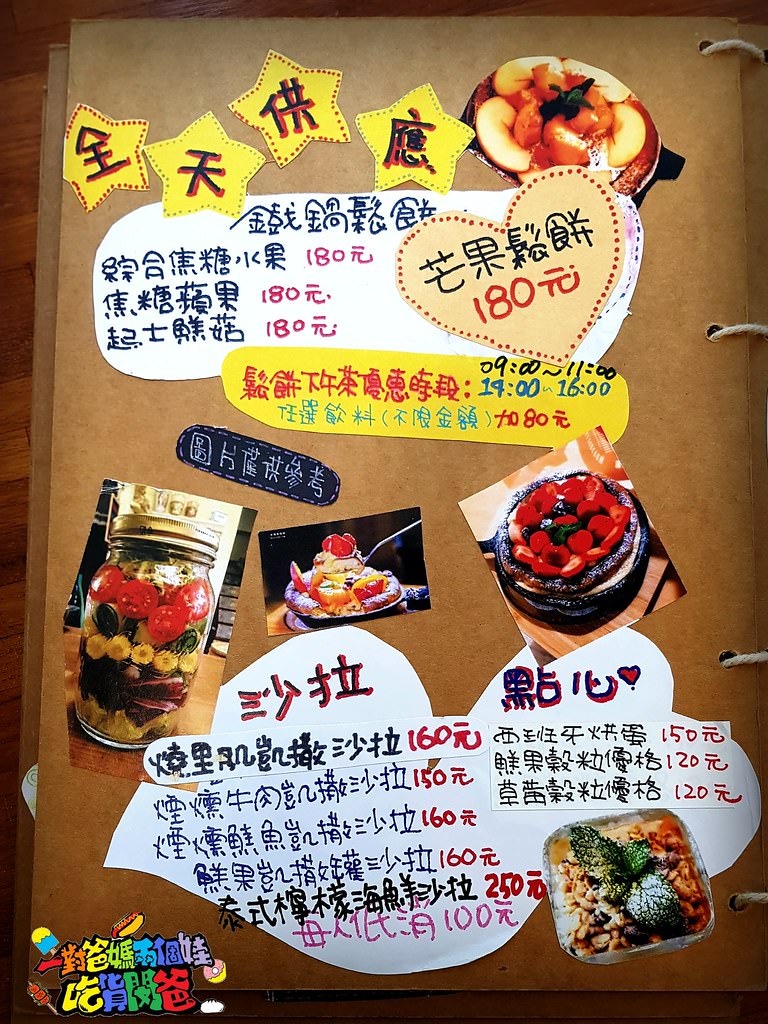 全天供應
鐵鍋鬆餅
綜合焦糖水果 180元
焦糖蘋果 180元
起士鮮菇 180元
芒果鬆餅
180元
鬆餅下午茶優惠時段:09:00~11:00
14:00~16:00
任選飲料(不限金額)加80元
圖片僅供參考
沙拉
燎里肌凱撒沙拉160元
煙燻牛肉凱撒沙拉150元
煙燻鮭魚凱撒沙拉160元
鮮果凱撒罐沙拉160元
泰式檸檬海鮮沙拉 250元
每人低消100元
點心
西班牙烘蛋 150元
鮮果穀粒優格 120元
草莓穀粒優格 120元
一對爸媽兩個娃
吃貨闆爸